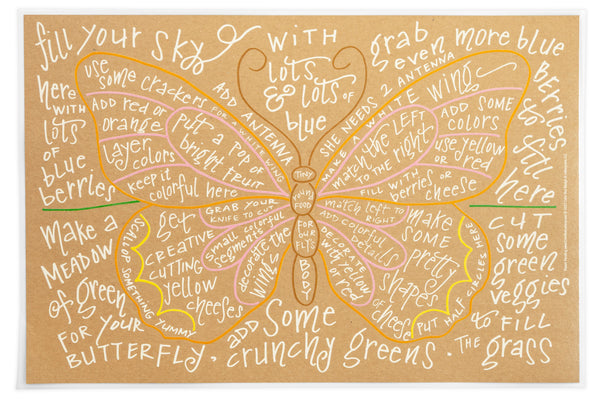 fill your sky
WITH
lots
& lots OF
blue
grab
even more blue
berries
to fill
here
here
WITH
lots
OF
blue
berries
use
some crackers
FOR A WHITE WING
ADD ANTENNA
SHE NEEDS 2 ANTENNA
MAKE A WHITE wing
ADD RED OR
orange
layer
colors
keep it
colorful here
put a pop of
bright fruit
match the LEFT
to the right
ADD SOME
COLORS
use yellow
OR red
FILL WITH
berries OR cheese
TINY
ROUND
FOOD
FOR
OUR
FLY'S
BODY
GRAB YOUR
KNIFE TO CUT
small colorful
segments
decorate the
wing
match left TO
RIGHT
ADD colorful
details
DECORATE
with yellow
or red
get
CREATIVE
cutting
yellow
cheeses
SCALLOP SOMETHING YUMMY
MAKE
SOME
pretty
shapes
of cheese
PUT HALF CIRCLES HERE
Make a
MEADOW
of green
FOR YOUR
BUTTERFLY.
ADD some
crunchy greens.
CUT
some
green
veggies
to FILL
THE grass